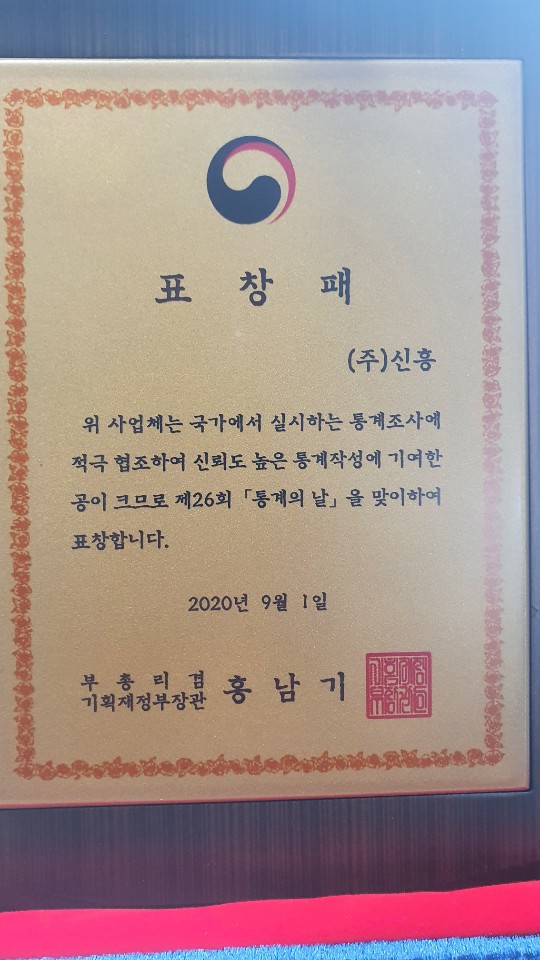 표 창 패
(주)신흥
위 사업체는 국가에서 실시하는 통계조사에
적극 협조하여 신뢰도 높은 통계작성에 기여한
공이 크므로 제26회 「통계의 날」을 맞이하여
표창합니다.
2020년 9월 1일
부 총 리 겸
기획재정부장관 홍 남 기